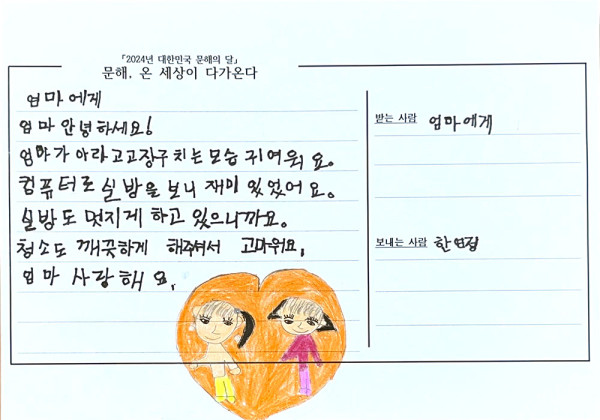 「2024년 대한민국 문해의 달」
문해, 온 세상이 다가온다
엄마에게
엄마 안녕하세요!
엄마가 아라고고장구 치는 모습 귀여워요.
컴퓨터로 실방을 보니 재미 있었어요.
실방도 멋지게 하고 있으니까요.
청소도 깨끗하게 해주셔서 고마워요,
엄마 사랑해요,
받는 사람 엄마에게
보내는 사람 한연점